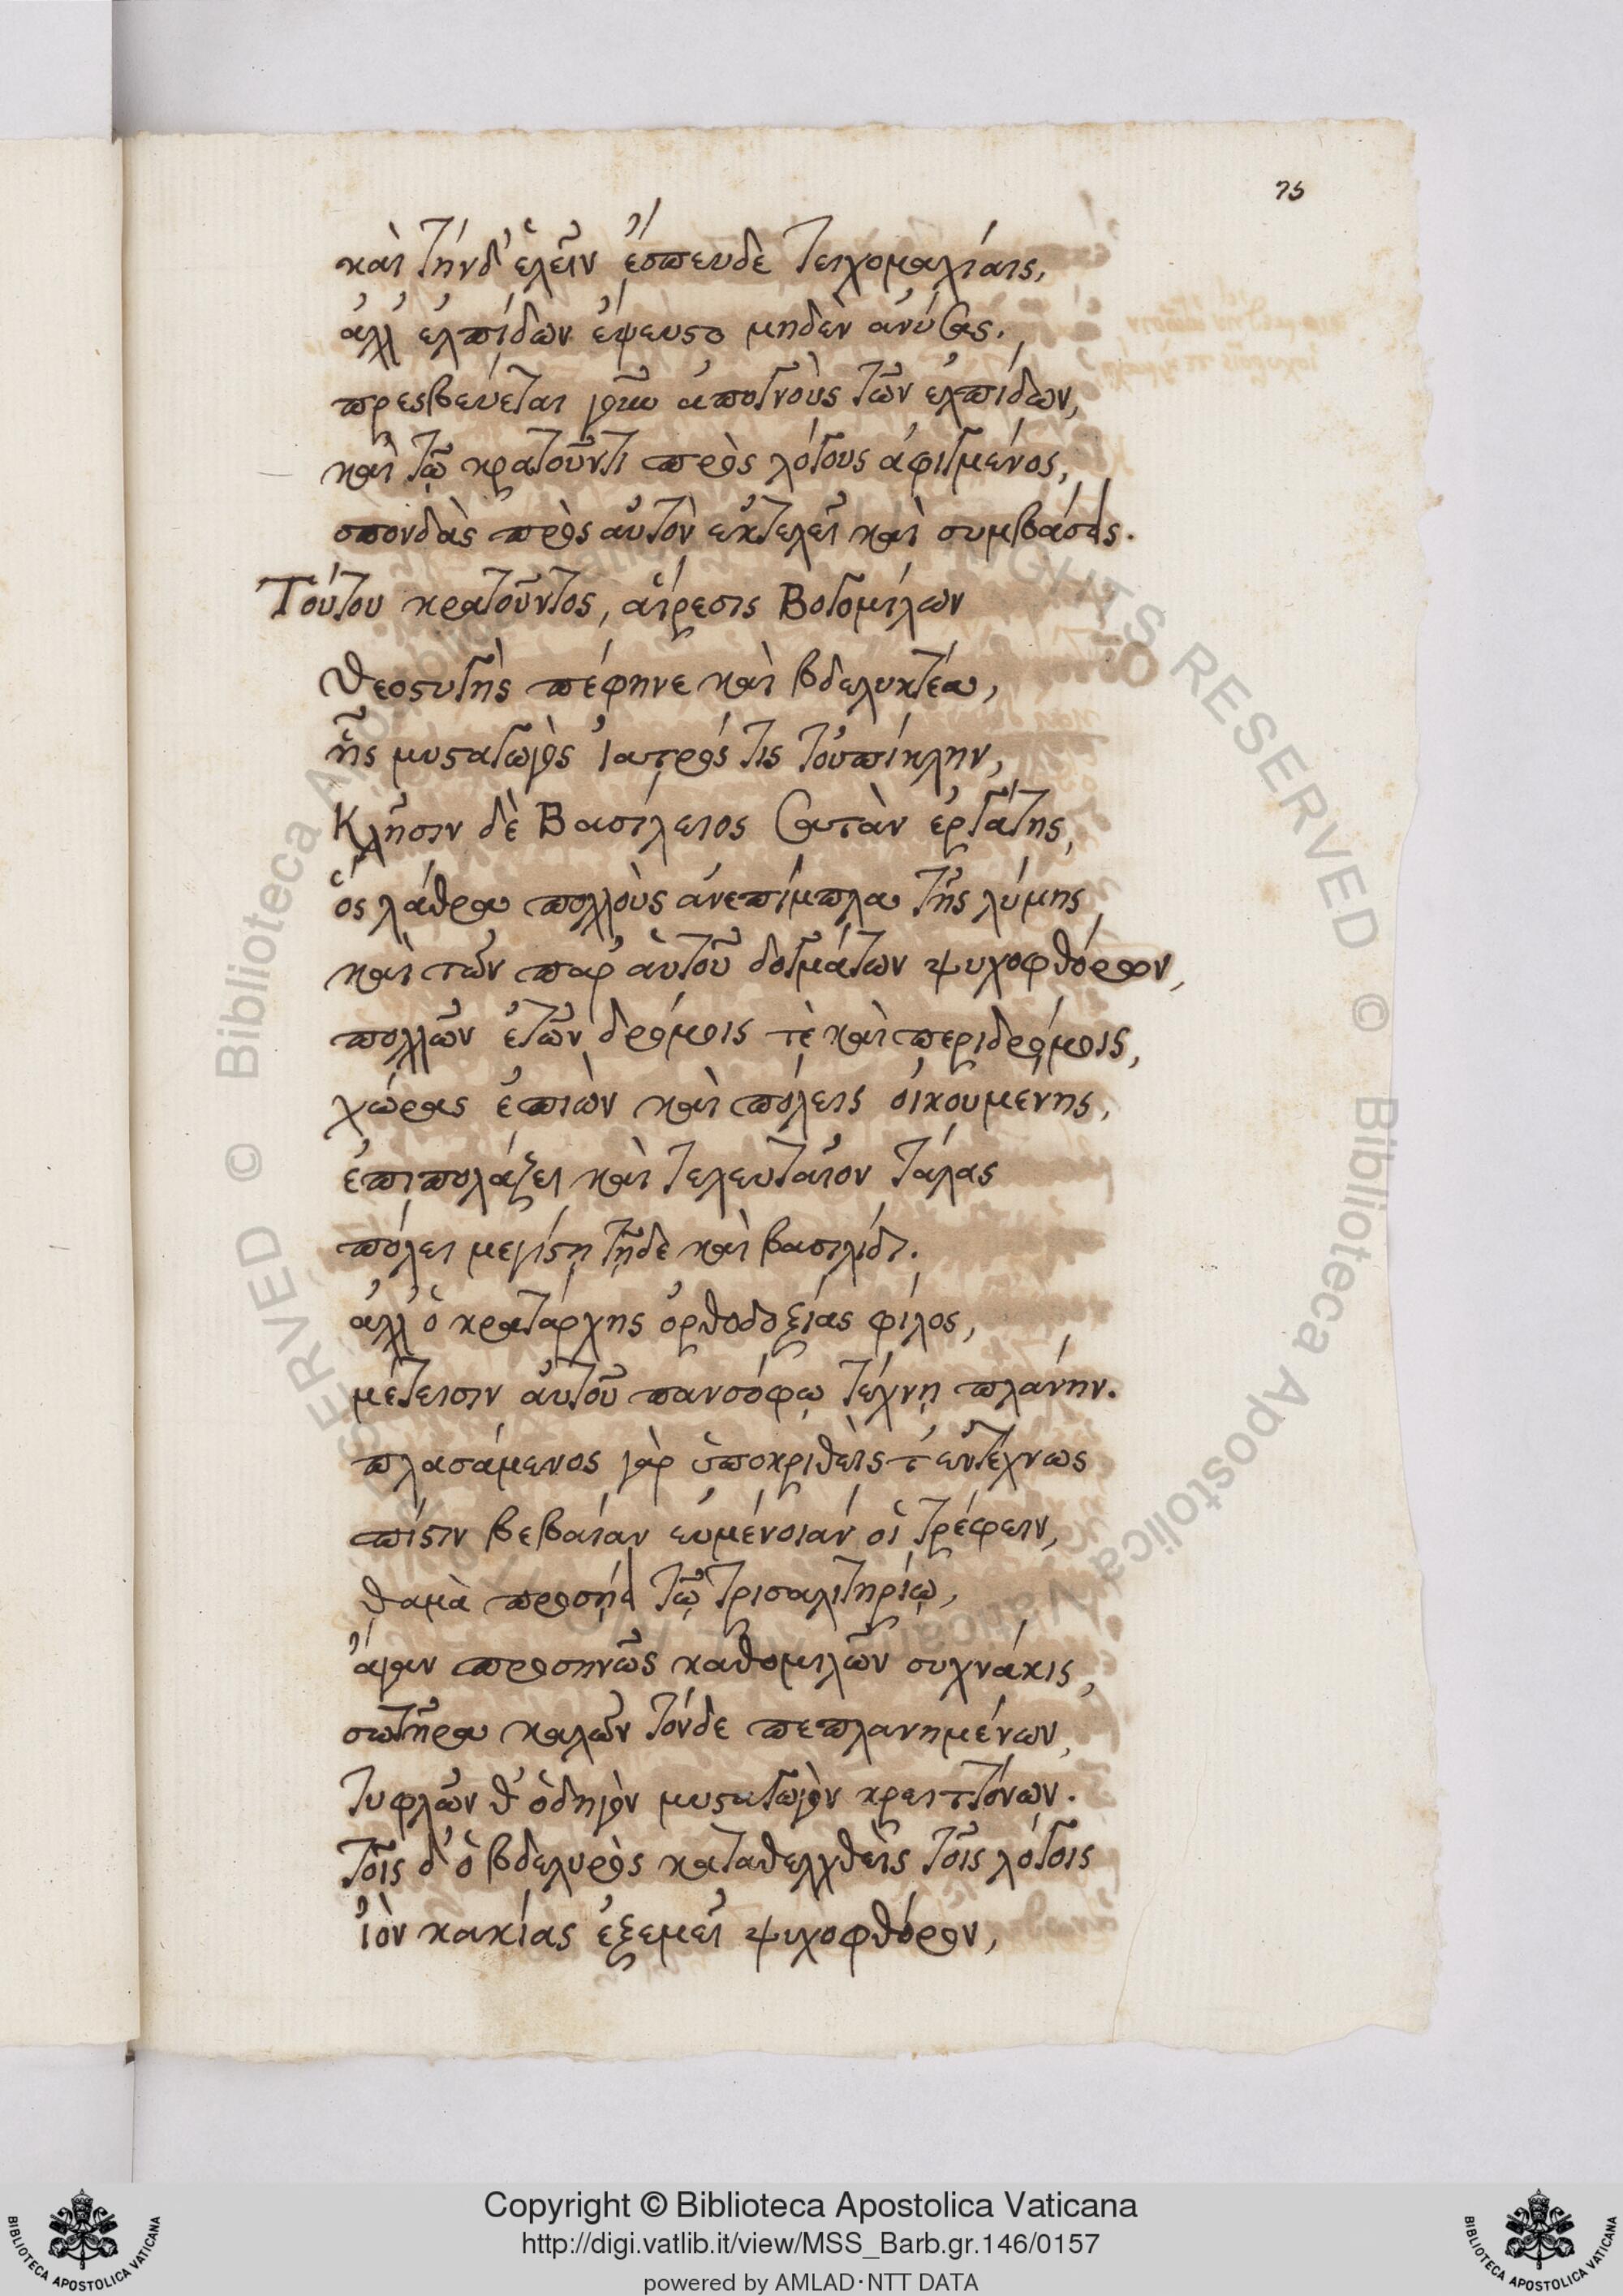 75
καὶ τήνδ' ἑλεῖν ἔσπευδε τειχομαχίαις,
ἀλλ' ἐλπίδων ἔψευστο μηδὲν ἀνύσας.
πρεσβεύεται γοῦν ἀπογνοὺς τῶν ἐλπίδων,
καὶ τῷ κρατοῦντι πρὸς λόγους ἀφιγμένος,
σπονδὰς πρὸς αὐτὸν ἐκτελεῖ καὶ συμβάσεις.
Τούτου κρατοῦντος, αἵρεσις Βογομίλων
θεοστυγὴς πέφηνε καὶ βδελυκτέα,
ἧς μυσταγωγὸς Ἰατρός τις τοὐπίκλην,
Κλῆσιν δὲ Βασίλειος Σατὰν ἐργάτης,
ὅς λάθρα πολλοὺς ἀνεπίμπλα τῆς λύμης
καὶ τῶν παρ' αὑτοῦ δογμάτων ψυχοφθόρων,
πολλῶν ἐτῶν δρόμοις τὲ καὶ περιδρόμοις,
χώρας ἐπιὼν καὶ πόλεις οἰκουμένης,
ἐπιπολάζει καὶ τελευταῖον τάλας
πόλει μεγίστῃ τῇδε καὶ βασιλίδι.
ἀλλ' ὁ κρατάρχης ὀρθοδοξίας φίλος,
μέτεισιν αὐτοῦ πανσόφῳ τέχνῃ πλάνην.
πλασάμενος γὰρ ὑποκριθεὶς τ' ἐντέχνως
πίστιν βεβαίαν εὐμένοιάν οἱ τρέφειν,
θαμὰ προσῄει τῷ τρισαλιτηρίῳ,
ἄγαν προσηνῶς καθομιλῶν συχνάκις,
σωτῆρα καλῶν τόνδε πεπλανημένων,
τυφλῶν θ' ὁδηγὸν μυσταγωγὸν κρειττόνων.
τοῖς δ' ὁ βδελυρὸς καταθελχθεὶς τοῖς λόγοις
ἰὸν κακίας ἐξεμεῖ ψυχοφθόρον,
Copyright © Biblioteca Apostolica Vaticana
http://digi.vatlib.it/view/MSS_Barb.gr.146/0157
powered by AMLAD·NTT DATA
BIBLIOTECA APOSTOLICA VATICANA
BIBLIOTECA APOSTOLICA VATICANA